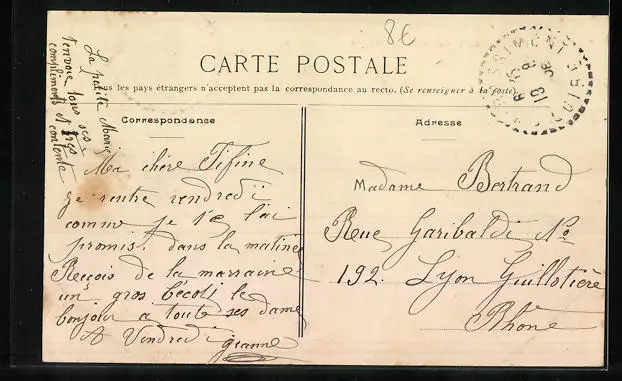 8€
CARTE POSTALE
Tous les pays étrangers n'acceptent pas la correspondance au recto. (Se renseigner à la poste)
Correspondance
Ma chère Fifine
je rentre vendredi
comme je te l'ai
promis. dans la matinée
Reçois de la marraine
un gros bécoti le
bonjour a toute ses dame
A Vendredi
jeanne
La petite Marie
t'envoie tous ses
compliments et très
contente
Adresse
Madame Bertrand
Rue Garibaldi No
192. Lyon Guillotière
Rhône